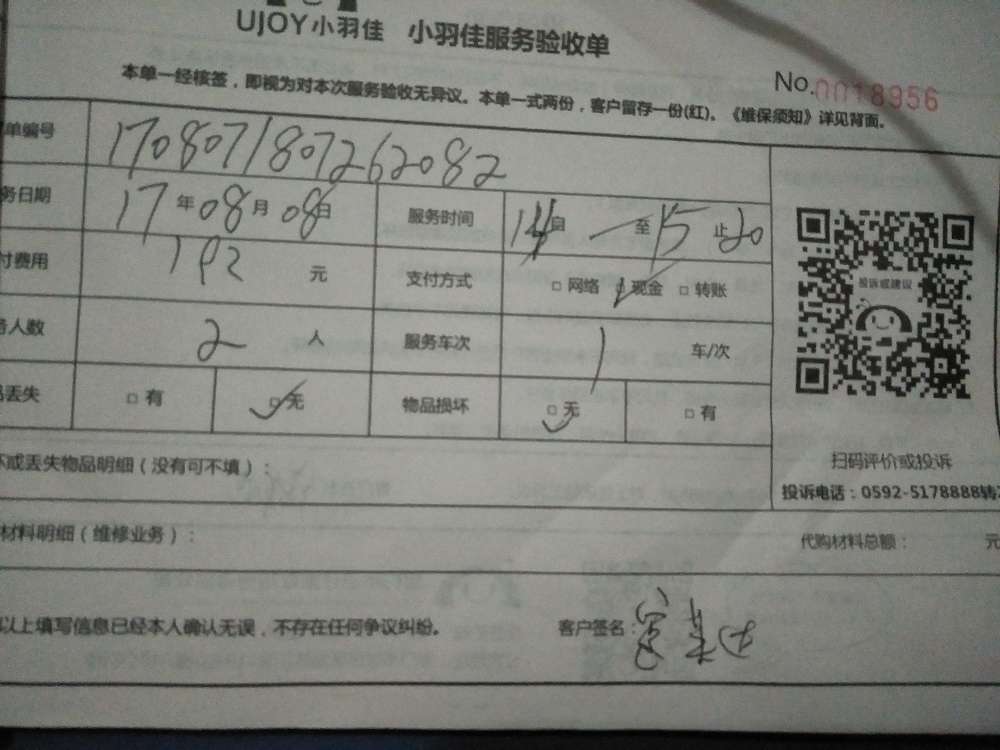 UJOY小羽佳 小羽佳服务验收单
No.0018956
本单一经核签，即视为对本次服务验收无异议。本单一式两份，客户留存一份(红)。《维保须知》详见背面。
单编号 1708071807262082
务日期 17年08月08日 服务时间 14自 至15止20
付费用 192元 支付方式 □网络 □现金 □转账
人数 2人 服务车次 1 车/次
丢失 □有 □无 物品损坏 □无 □有
投诉或建议
扫码评价或投诉
投诉电话：0592-5178888转
坏或丢失物品明细（没有可不填）：
材料明细（维修业务）： 代购材料总额： 元
以上填写信息已经本人确认无误，不存在任何争议纠纷。 客户签名：